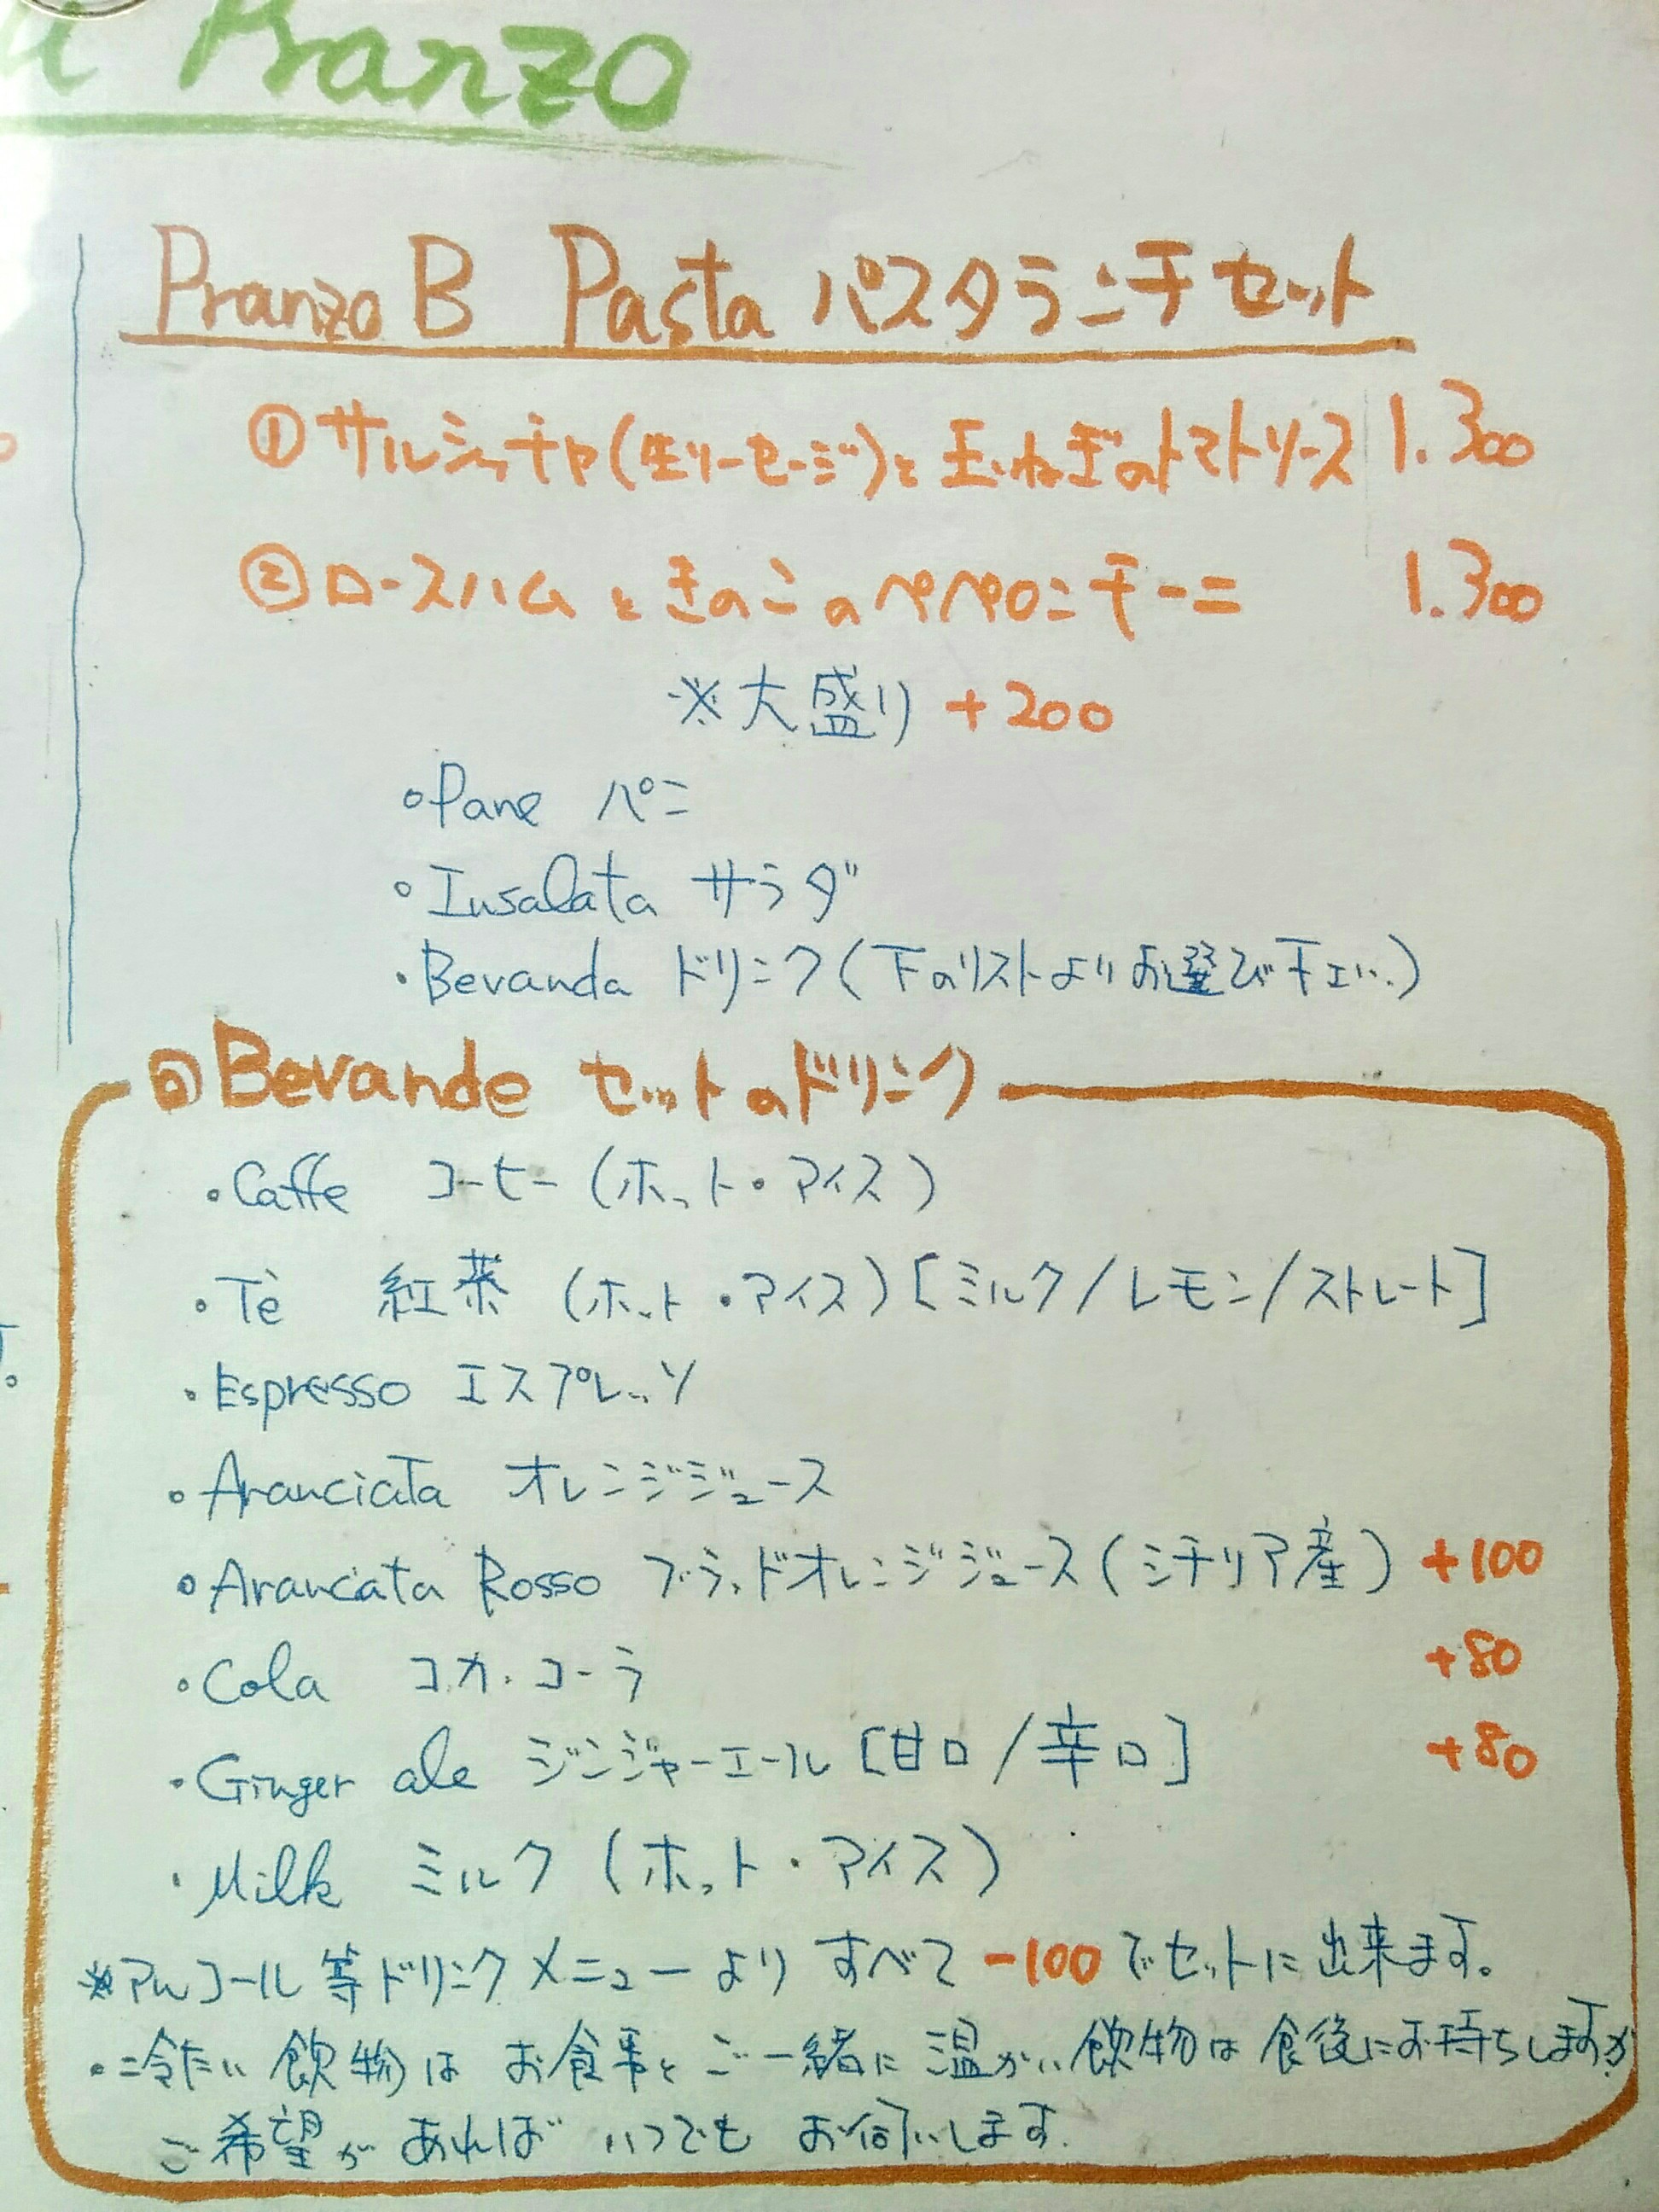 Pranzo
Pranzo B Pasta パスタランチセット
①サルシッチャ(生ソーセージ)と玉ねぎのトマトソース 1.300
②ロースハムときのこのペペロンチーニ 1.300
※大盛り +200
・Pane パン
・Insalata サラダ
・Bevanda ドリンク(下のリストよりお選び下さい。)
◎Bevande セットのドリンク
・Caffe コーヒー(ホット・アイス)
・Tè 紅茶(ホット・アイス)[ミルク/レモン/ストレート]
・Espresso エスプレッソ
・Aranciata オレンジジュース
・Aranciata Rosso ブラッドオレンジジュース(シチリア産) +100
・Cola コカ・コーラ +80
・Ginger ale ジンジャーエール[甘口/辛口] +80
・Milk ミルク(ホット・アイス)
※アルコール等ドリンクメニューよりすべて-100でセットに出来ます。
・冷たい飲物はお食事とご一緒に温かい飲物は食後にお持ちしますが
ご希望があればいつでもお伺いします。